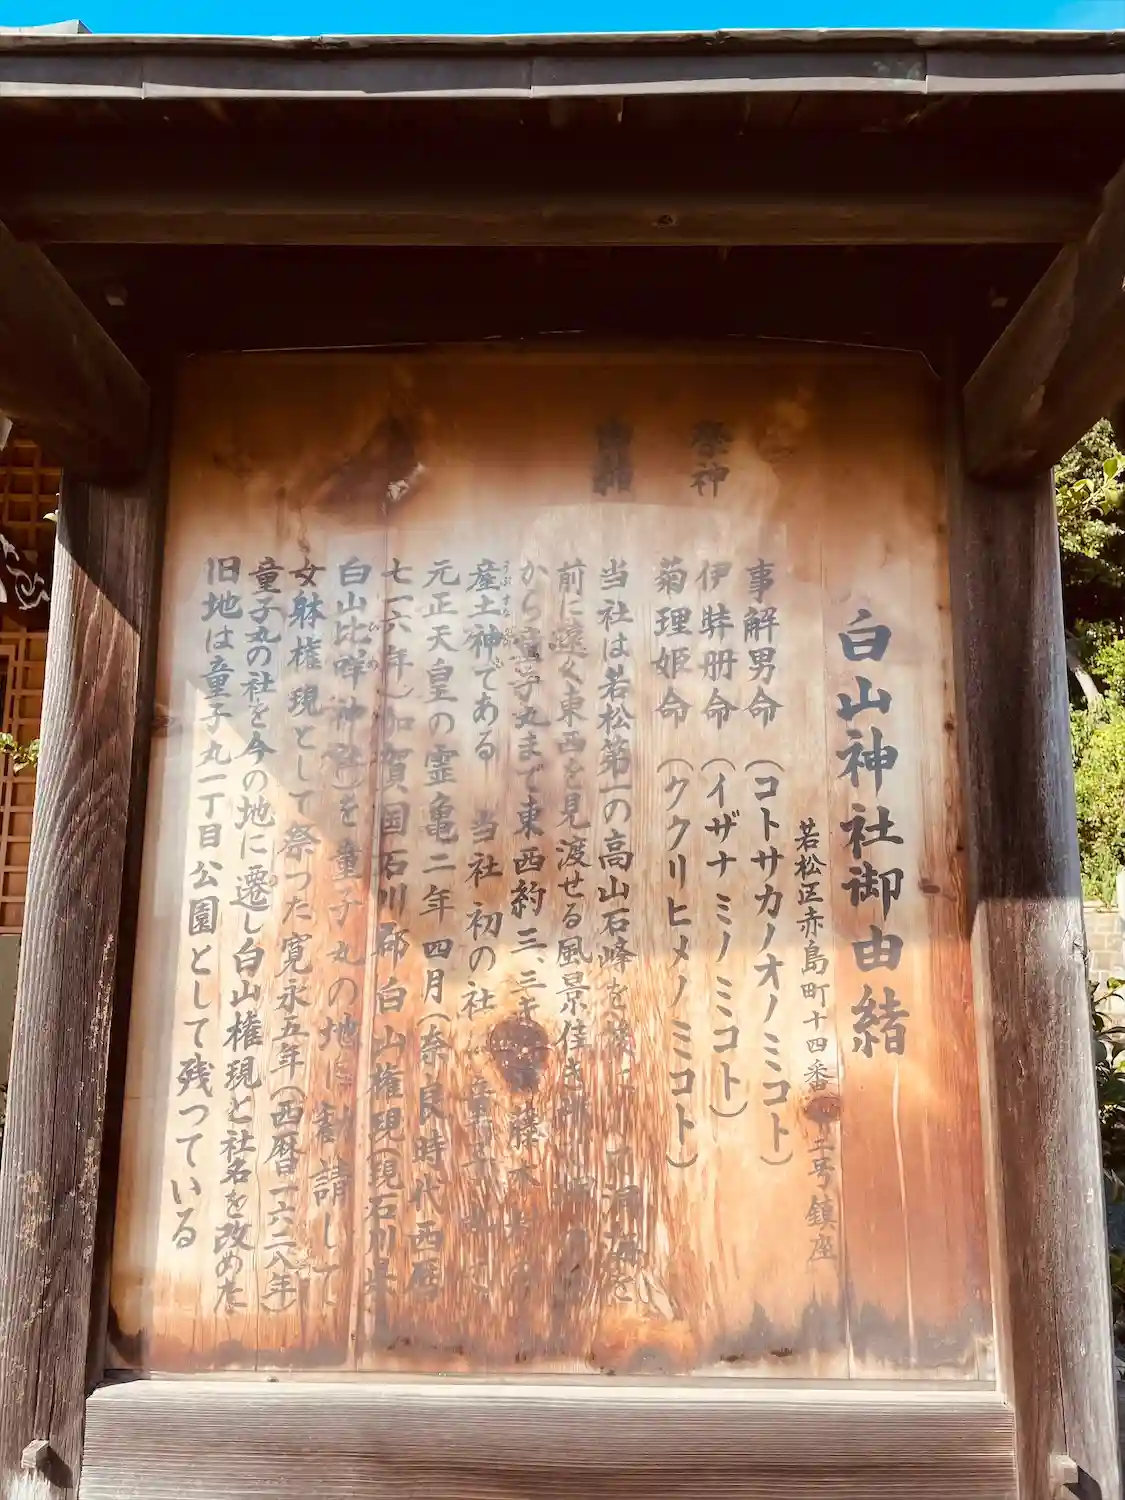 白山神社御由緒
若松区赤島町十四番二号鎮座
祭神
事解男命（コトサカノオノミコト）
伊弉册命（イザナミノミコト）
菊理姫命（ククリヒメノミコト）
当社は若松第一の高山石峰を
前に遠く東西を見渡せる風景佳き
から童子丸まで東西約三、三キ
産土神である 当社初の社
うぶすな
元正天皇の霊亀二年四月（奈良時代西暦
七一六年）加賀国石川郡白山権現（現石川県
白山比咩神社）を童子丸の地に勧請して
ひめ
女躰権現として祭つた寛永五年（西暦一六二八年）
童子丸の社を今の地に遷し白山権現と社名を改めた
旧地は童子丸一丁目公園として残つている